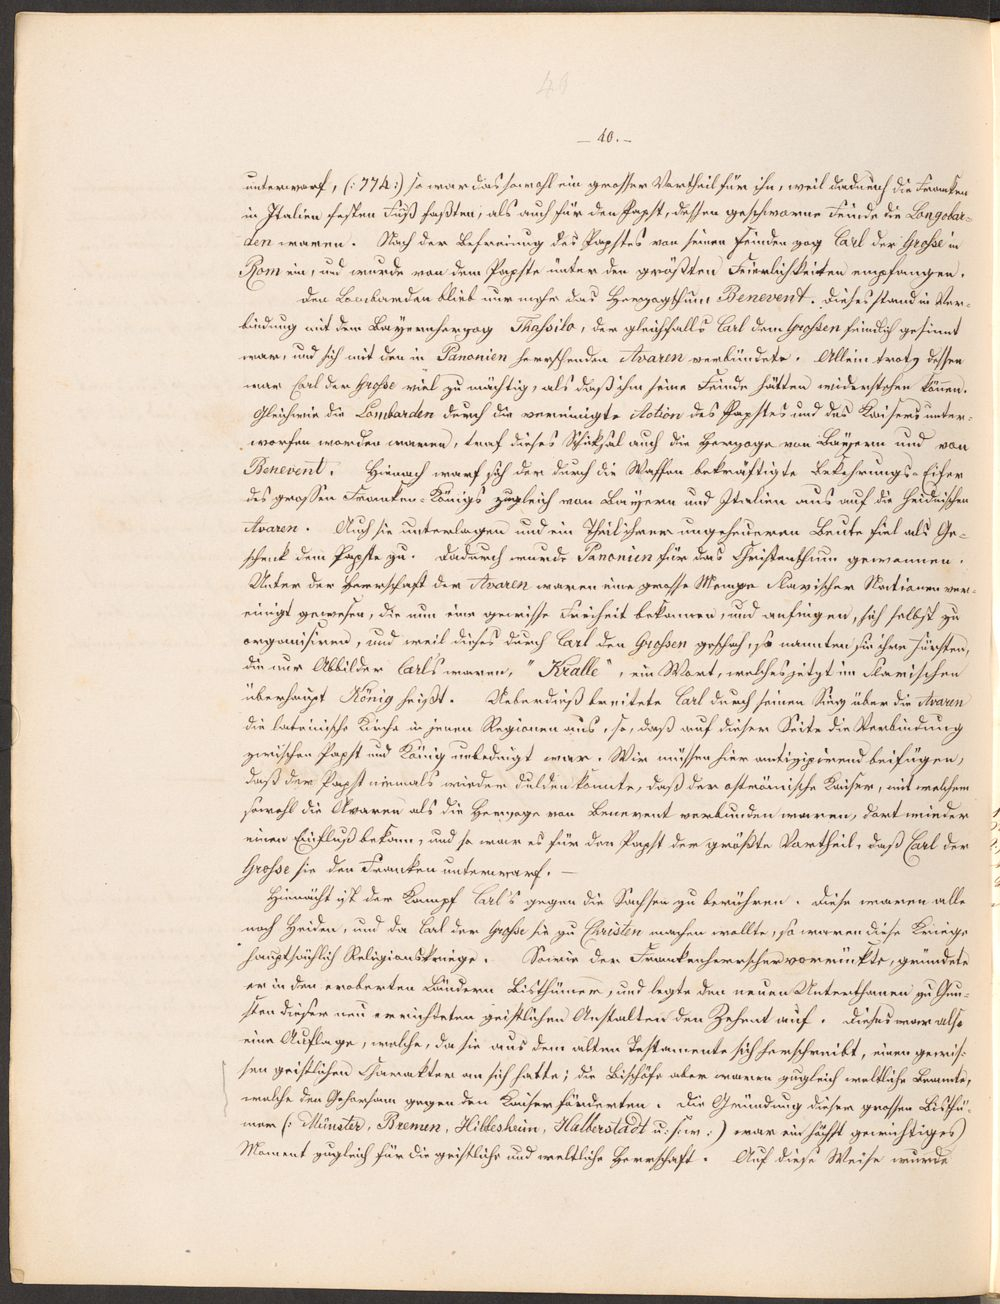 40
— 40. —
unterwarf, (: 774 :) so war das sowohl ein grosser Vortheil für ihn, weil dadurch die Franken
in Italien festen Fuß faßten, als auch für den Papst, dessen geschworne Feinde die Longobar=
den waren. Nach der Befreiung des Papstes von seinen Feinden zog Carl der Große in
Rom ein, und wurde von dem Papste unter den größten Feierlichkeiten empfangen.
Den Lombarden blieb nur mehr das Herzogthum Benevent. Dieses stand in Ver=
bindung mit dem Bayernherzog Thassilo, der gleichfalls Carl dem Großen feindlich gesinnt
war, und sich mit den in Panonien herrschenden Avaren verbündete. Allein trotz dessen
war Carl der Große viel zu mächtig, als daß ihm seine Feinde hätten widerstehen können.
Gleichwie die Lombarden durch die vereinigte Action des Papstes und des Kaisers unter=
worfen worden waren, traf dieses Schicksal auch die Herzoge von Bayern und von
Benevent. Hienach warf sich der durch die Waffen bekräftigte Bekehrungs-Eifer
des grossen Franken-Königs zugleich von Bayern und Italien aus auf die heidnischen
Avaren. Auch sie unterlagen und ein Theil ihrer ungeheueren Beute fiel als Ge=
schenk dem Papste zu. Dadurch wurde Panonien für das Christenthum gewonnen.
Unter der Herrschaft der Avaren waren eine grosse Menge slavischer Nationen ver=
einigt gewesen, die nun eine gewisse Freiheit bekamen, und anfingen, sich selbst zu
organisiren, und weil dieses durch Carl den Großen geschah, so nannten sie ihre Fürsten,
die nur Abbilder Carl's waren, "Kralle", ein Wort, welches jetzt im Slavischen
überhaupt König heißt. Ueberdieß breitete Carl durch seinen Sieg über die Avaren
die lateinische Kirche in jenen Regionen aus, so, daß auf dieser Seite die Verbindung
zwischen Papst und König unbedingt war. Wir müssen hier antizipirend beifügen,
daß der Papst niemals wieder dulden konnte, daß der oströmische Kaiser, mit welchem
sowohl die Avaren als die Herzoge von Benevent verbunden waren, dort wieder
einen Einfluß bekam, und so war es für den Papst der größte Vortheil, daß Carl der
Große sie den Franken unterwarf. —
Hienächst ist der Kampf Carl's gegen die Sachsen zu berühren. Diese waren alle
noch Heiden, und da Carl der Große sie zu Christen machen wollte, so waren diese Kriege
hauptsächlich Religionskriege. Sowie der Frankenherrscher vorrückte, gründete
er in den eroberten Ländern Bisthümer, und legte den neuen Unterthanen zu Gun=
sten dieser neu errichteten geistlichen Anstalten den Zehent auf. Dieses war also
eine Auflage, welche, da sie aus dem alten Testamente sich herschreibt, einen gewis=
sen geistlichen Charakter an sich hatte; die Bischöfe aber waren zugleich weltliche Beamte,
welche den Gehorsam gegen den Kaiser förderten. Die Gründung dieser grossen Bisthü=
mer (: Münster, Bremen, Hildesheim, Halberstadt u: s: w :) war ein höchst gewichtiges
Moment zugleich für die geistliche und weltliche Herrschaft. Auf diese Weise wurde